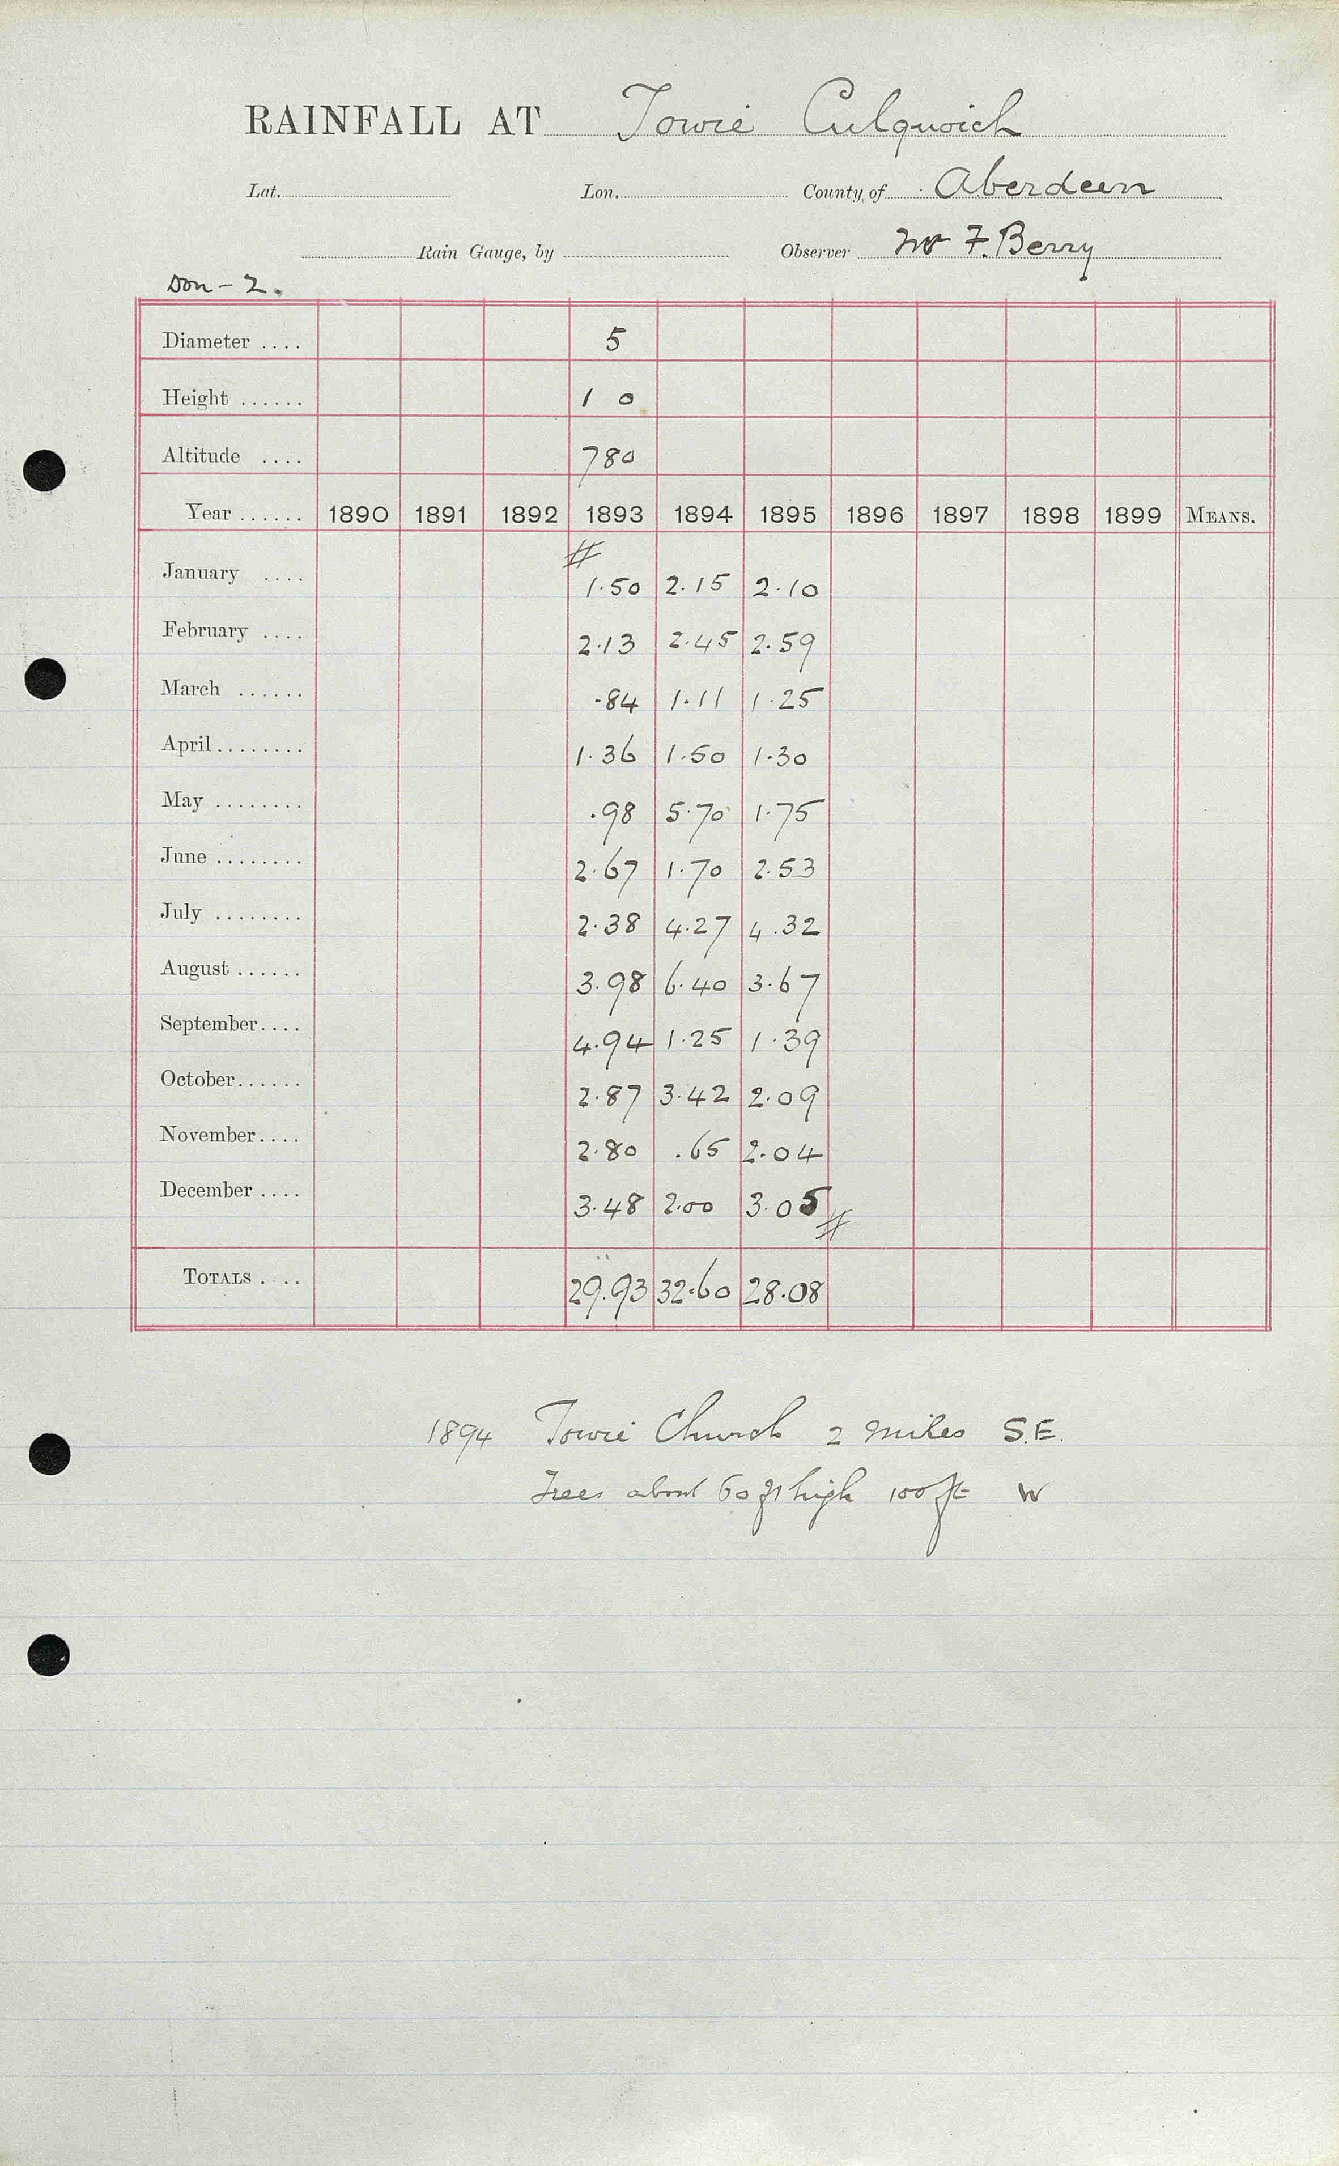 RAINFALL AT Towie Culquoich
Lat. Lon. County of Aberdeen
Rain Gauge, by Observer Mr F. Berry
Don - 2.
Diameter .... 5
Height ...... 1 0
Altitude .... 780
Year ...... 1890 1891 1892 1893 1894 1895 1896 1897 1898 1899 MEANS.
#
January .... 1.50 2.15 2.10
February .... 2.13 2.45 2.59
March ...... .84 1.11 1.25
April ........ 1.36 1.50 1.30
May ........ .98 5.70 1.75
June ........ 2.67 1.70 2.53
July ........ 2.38 4.27 4.32
August ...... 3.98 6.40 3.67
September .... 4.94 1.25 1.39
October ...... 2.87 3.42 2.09
November .... 2.80 .65 2.04
December .... 3.48 2.00 3.05 #
TOTALS .... 29.93 32.60 28.08
1894 Towie Church 2 miles S.E.
Trees about 60 ft high 100 ft W